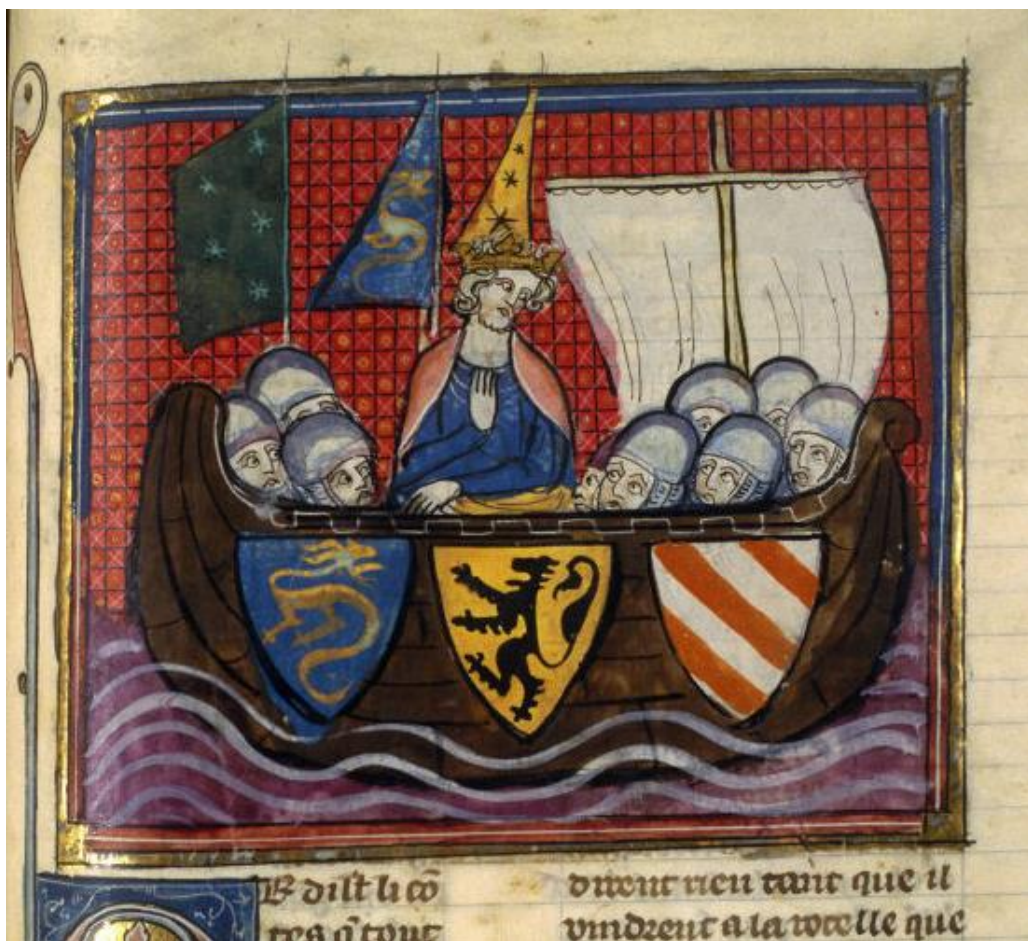 R dist li cō
tes q̄ tout
dirent rien tant que il
vindrent a la rocelle que